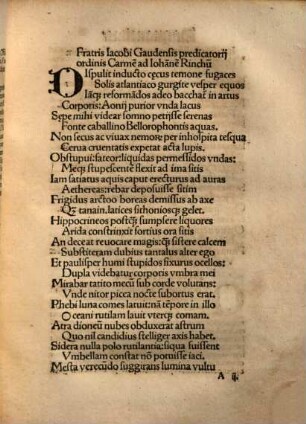 Fratris Iacobi Gaudensis predicatorij
ordinis Carmē ad Iohānē Rinchū
DIspulit inducto cęcus temone fugaces
Solis atlantiaco gurgite vesper equos
Iāqȝ reformādos adeo bacchat͛ in artus
Corporis: Aonij purior vnda lacus
Sępe mihi videar somno petijsse serenas
Fonte caballino Bellorophontis aquas.
Non secus ac viuax nemorꝫ per inhospita tesqua
Cerua cruentatis expetat acta lupis.
Obstupui: fateor: liquidas permessidos vndas:
Meqȝ stupescentē flexit ad ima sitis
Iam satiatus aquis caput erecturus ad auras
Aethereas: rebar deposuisse sitim
Frigidus arctoo boreas demissus ab axe
Qȝ tanain. latices sithoniosqȝ gelet.
Hippocrineos postqȝ̄ sumpsere liquores
Arida constrinxit fortius ora sitis
An deceat reuocare magis: qȝ̄ sistere calcem
Substiteram dubius tantalus alter ego
Et paulisper humi stupidos fixurus ocellos:
Dupla videbatur corporis vmbra mei
Mirabar tatito mecū sub corde volutans:
Vnde nitor picca nocte subortus erat.
Phębi luna comes latuit: nā tēpore in illo
Oceani rutilam lauit vterqȝ comam.
Atra dioneū nubes obduxerat astrum
Quo nil candidius stelliger axis habet.
Sidera nulla polo rutilantia: siqua fuissent
Vmbellam constat nō potuisse iaci.
Męsta verecūdo suggirans lumina vultu
A ij.